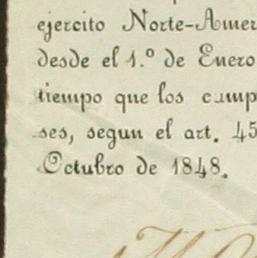 ejercito Norte-Amer
desde el 1.º de Enero
tiempo que los cump
ses, segun el art. 45
Octubre de 1848.